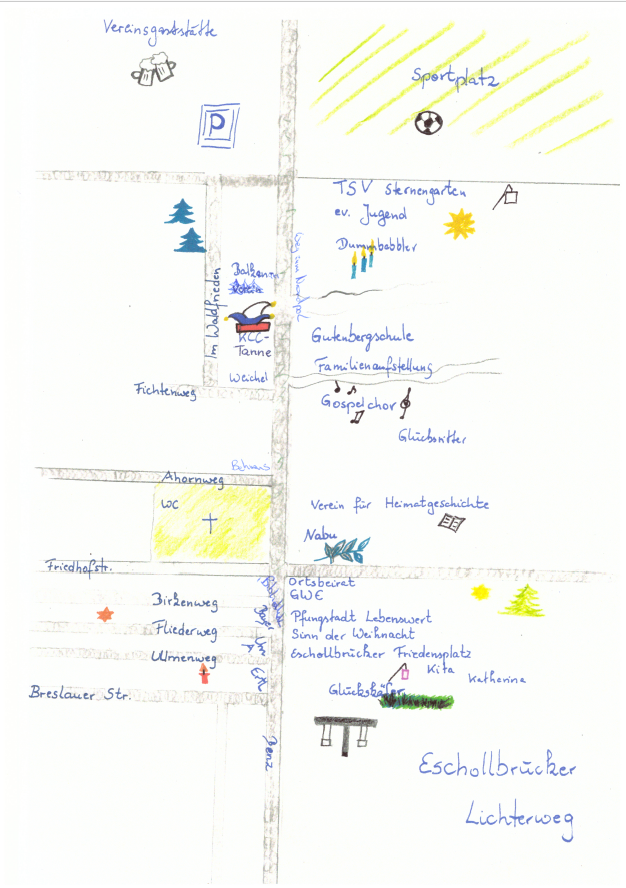 Vereinsgaststätte
Sportplatz
P
TSV Sternengarten
ev. Jugend
Dummbabbler
Im Waldfrieden
KCC-
Tanne
Gutenbergschule
Familienaufstellung
Weichel
Fichtenweg
Gospelchor
Glücksritter
Behrens
Ahornweg
WC
Verein für Heimatgeschichte
Nabu
Friedhofstr.
Ortsbeirat
GWE
Birkenweg
Pfungstadt Lebenswert
Fliederweg
Sinn der Weihnacht
Eschollbrücker Friedensplatz
Ulmenweg
Kita
Katharina
Breslauer Str.
Glückskäfer
Benz
Eschollbrücker
Lichterweg